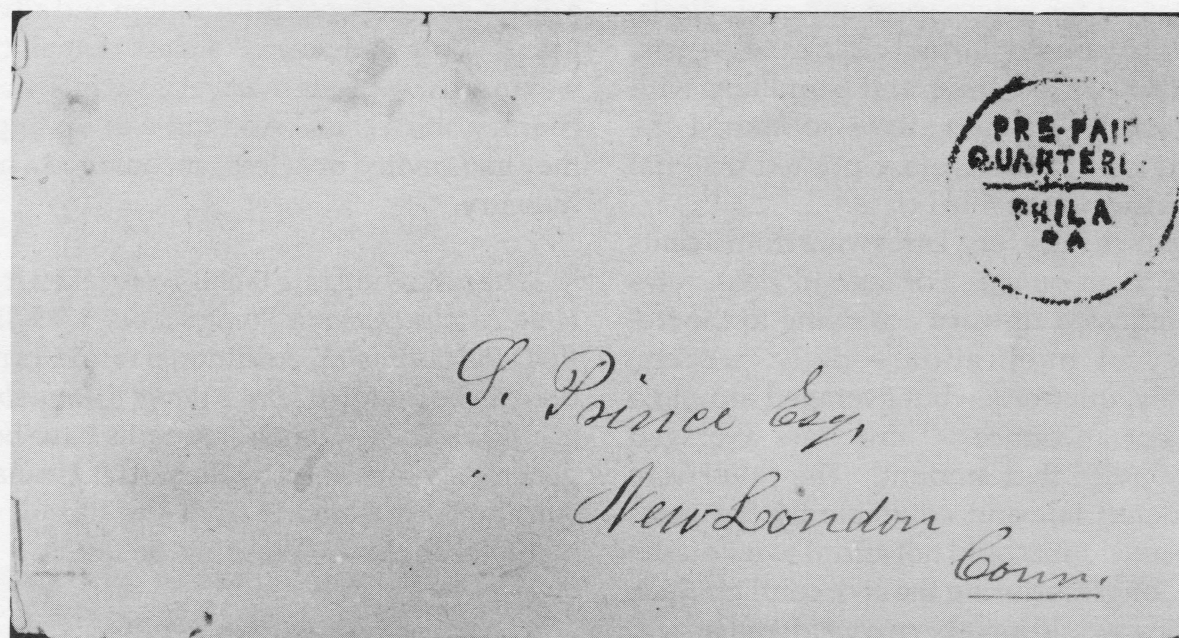 PRE-PAID
QUARTERL
PHILA
PA
S. Prince Esq,
New London
Conn.